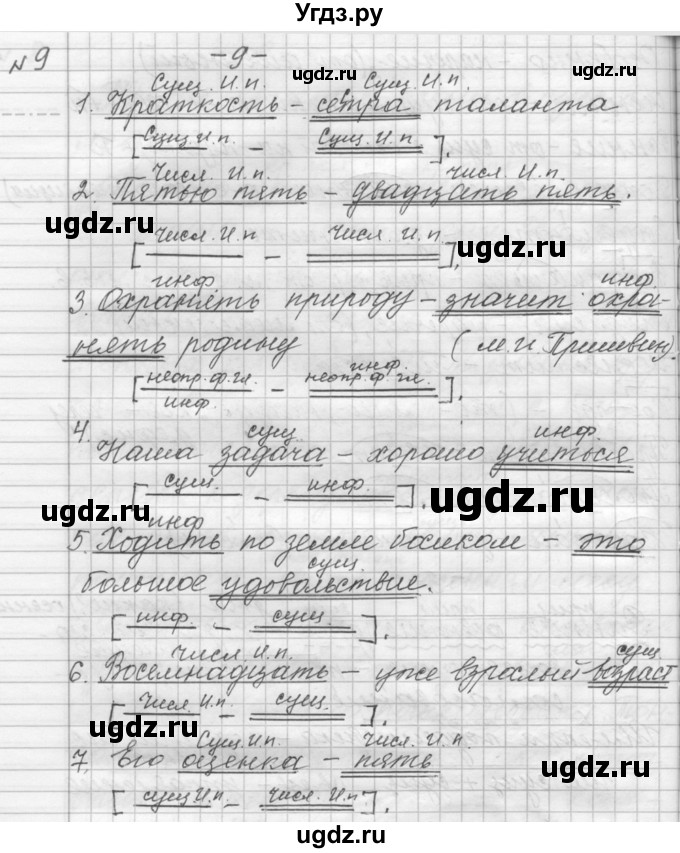 Угдз.ру
№9 -9-
Сущ. И.п. Сущ. И.п.
1. Краткость – сестра таланта
[Сущ. И.п. – Сущ. И.п.].
Числ. И.п. числ. И.п.
2. Пятью пять – двадцать пять.
ugdz.ru ugdz.ru
[числ. И.п – числ. И.п.].
ugdz.ru
инф инф.
3. Охранять природу – значит охра-
нять родину (М.И Пришвин).
инф.
[неопр.ф.гл. – неопр.ф.гл.].
инф.
4. сущ инф.
Наша задача – хорошо учиться
[сущ. – инф.].
ugdz.ru ugdz.ru
инф
5. Ходить по земле босиком – это
сущ.
большое удовольствие.
[инф. – сущ.].
числ И.п. сущ
6. Восемнадцать – уже взрослый возраст
[Числ. И.п. – сущ.].
ugdz.ru
Сущ И.п. Числ. И.п.
7. Его оценка – пять
ugdz.ru
[сущ И.п. – числ. И.п.].
ugdz.ru